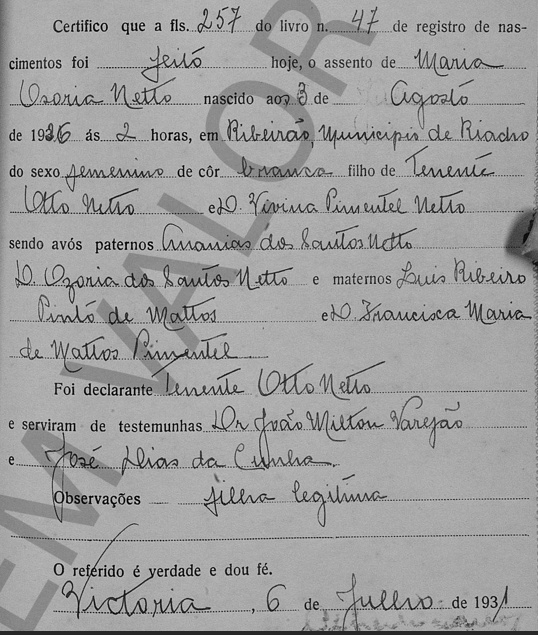 Certifico que a fls. 257 do livro n. 47 de registro de nas-
cimentos foi feitó hoje, o assento de Maria
Osoria Netto nascido aos 3 de Agostó
de 1926 ás 2 horas, em Ribeirão, Municipio de Riacho
do sexo femenino de côr branca filho de Tenente
Otto Netto e D. Vivina Pimentel Netto
sendo avós paternos Ananias dos Santos Netto
D. Ozoria dos Santos Netto e maternos Luis Ribeiro
Pinto de Mattos e D. Francisca Maria
de Mattos Pimentel
Foi declarante Tenente Otto Netto
e serviram de testemunhas Dr João Milton Varejão
e José Dias da Cunha.
Observações filha legitima
O referido é verdade e dou fé.
Victoria, 6 de Julho de 1931
EM VALOR